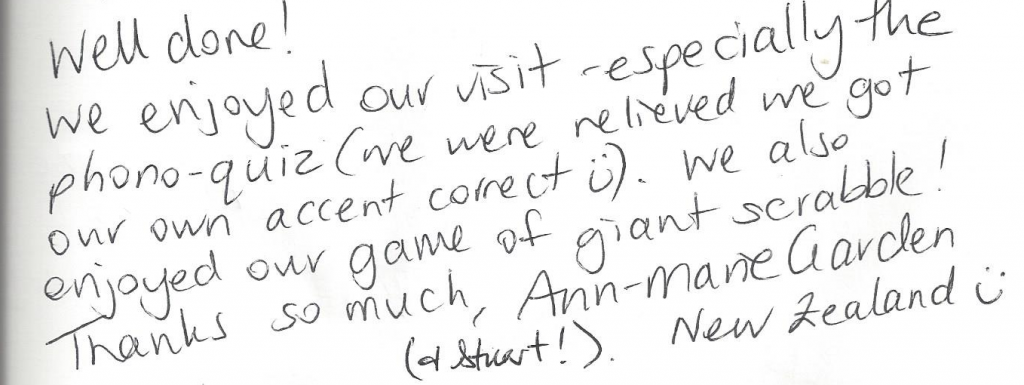 Well done!
We enjoyed our visit - especially the
phono-quiz (we were relieved we got
our own accent correct ü). We also
enjoyed our game of giant scrabble!
Thanks so much, Ann-Marie Garden
(& Stuart!). New Zealand ü